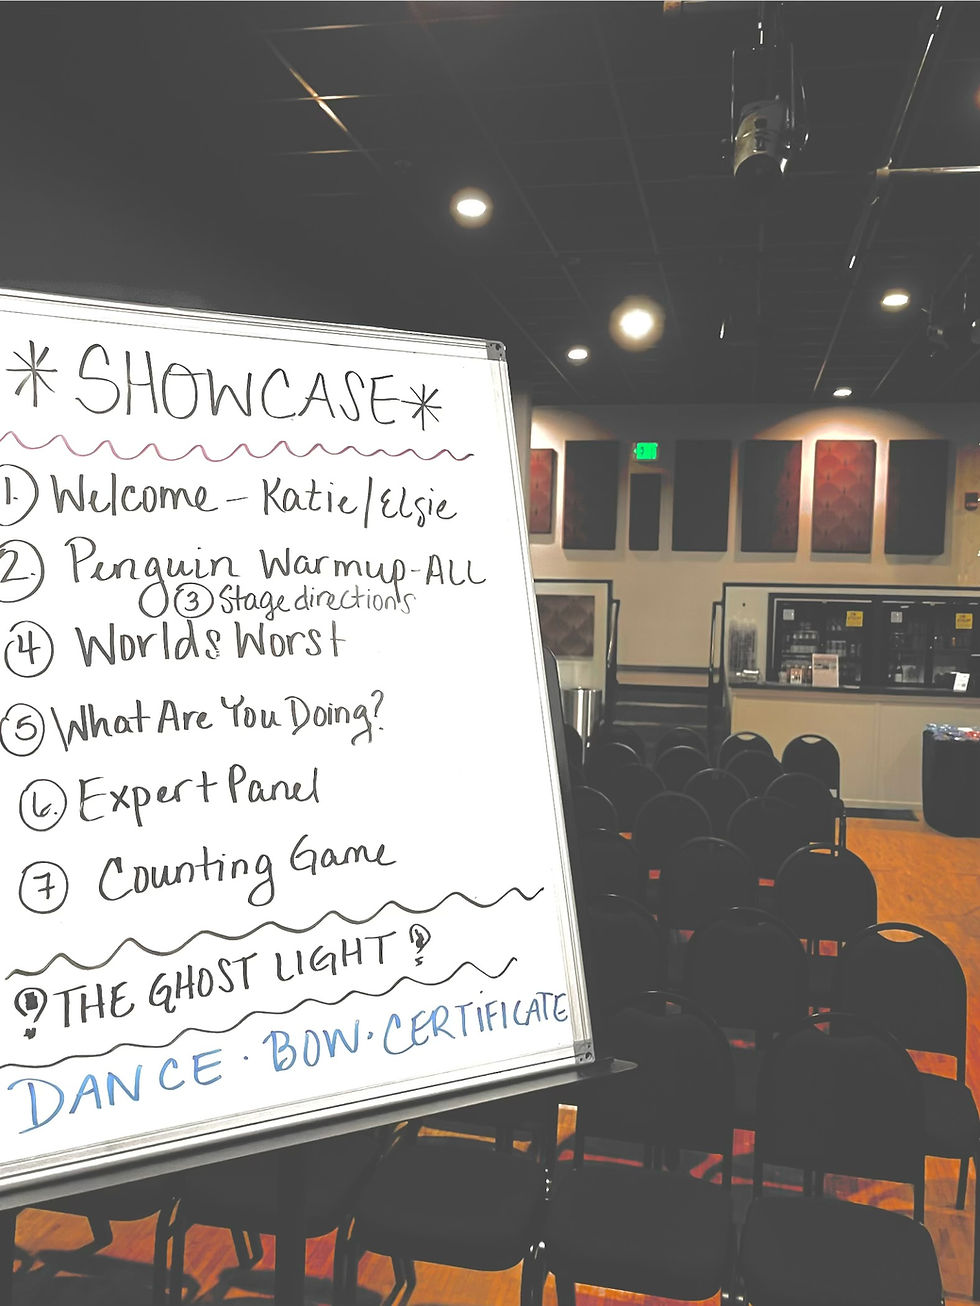 *SHOWCASE*
1. Welcome - Katie/Elsie
2. Penguin Warmup - ALL
3 Stage directions
4 Worlds Worst
5 What Are You Doing?
6. Expert Panel
7 Counting Game
THE GHOST LIGHT
DANCE · BOW · CERTIFICATE